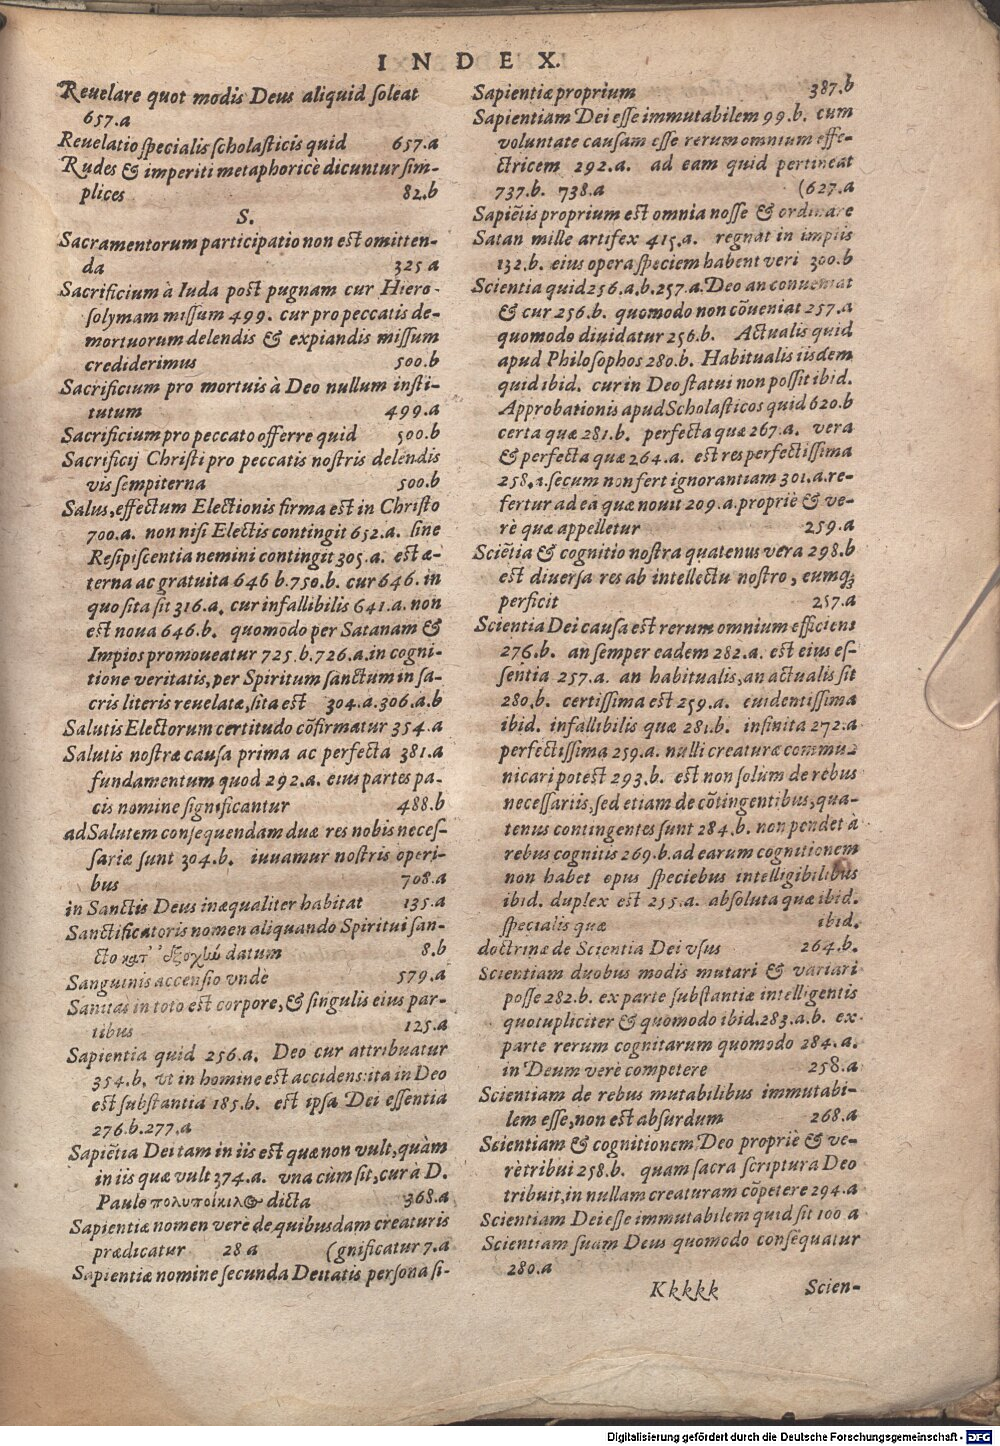 INDEX.
Reuelare quot modis Deus aliquid ſoleat
657.a
Reuelatio ſpecialis ſcholaſticis quid 657.a
Rudes & imperiti metaphoricè dicuntur ſim-
plices 82.b
S.
Sacramentorum participatio non eſt omitten-
da 325 a
Sacrificium à Iuda poſt pugnam cur Hiero-
ſolymam miſſum 499. cur pro peccatis de-
mortuorum delendis & expiandis miſſum
crediderimus 500.b
Sacrificium pro mortuis à Deo nullum inſti-
tutum 499.a
Sacrificium pro peccato offerre quid 500.b
Sacrificij Chriſti pro peccatis noſtris delendis
vis ſempiterna 500.b
Salus, effectum Electionis firma eſt in Chriſto
700.a. non niſi Electis contingit 652.a. ſine
Reſipiſcentia nemini contingit 305.a. eſt æ-
terna ac gratuita 646 b.750.b. cur 646. in
quo ſita ſit 316.a. cur infallibilis 641.a. non
eſt noua 646.b. quomodo per Satanam &
Impios promoueatur 725.b.726.a. in cogni-
tione veritatis, per Spiritum ſanctum in ſa-
cris literis reuelatæ, ſita eſt 304.a.306.a.b
Salutis Electorum certitudo cōfirmatur 354.a
Salutis noſtræ cauſa prima ac perfecta 381.a
fundamentum quod 292.a. eius partes pa-
cis nomine ſignificantur 488.b
ad Salutem conſequendam duæ res nobis neceſ-
ſariæ ſunt 304.b. iuuamur noſtris operi-
bus 708.a
in Sanctis Deus inæqualiter habitat 135.a
Sanctificatoris nomen aliquando Spiritui ſan-
cto κατ᾽ ἐξοχὴν datum 8.b
Sanguinis accenſio vnde 579.a
Sanitas in toto eſt corpore, & ſingulis eius par-
tibus 125.a
Sapientia quid 256.a. Deo cur attribuatur
354.b. vt in homine eſt accidens: ita in Deo
eſt ſubſtantia 185.b. eſt ipſa Dei eſſentia
276.b.277.a
Sapiētia Dei tam in iis eſt quæ non vult, quàm
in iis quæ vult 374.a. vna cùm ſit, cur à D.
Paulo πολυποίκιλος dicta 368.a
Sapientiæ nomen verè de quibuſdam creaturis
prædicatur 28 a (gnificatur 7.a
Sapientiæ nomine ſecunda Deitatis perſona ſi-
Sapientiæ proprium 387.b
Sapientiam Dei eſſe immutabilem 99.b. cum
voluntate cauſam eſſe rerum omnium effe-
ctricem 292.a. ad eam quid pertineat
737.b. 738.a (627.a
Sapiētis proprium eſt omnia noſſe & ordinare
Satan mille artifex 415.a. regnat in impiis
132.b. eius opera ſpeciem habent veri 300.b
Scientia quid 256.a.b.257.a. Deo an conueniat
& cur 256.b. quomodo non cōueniat 257.a
quomodo diuidatur 256.b. Actualis quid
apud Philoſophos 280.b. Habitualis iiſdem
quid ibid. cur in Deo ſtatui non poſſit ibid.
Approbationis apud Scholaſticos quid 620.b
certa quæ 281.b. perfecta quæ 267.a. vera
& perfecta quæ 264.a. eſt res perfectiſſima
258.a. ſecum non fert ignorantiam 301.a. re-
fertur ad ea quæ nouit 209.a. propriè & ve-
rè quæ appelletur 259.a
Sciētia & cognitio noſtra quatenus vera 298.b
eſt diuerſa res ab intellectu noſtro, eumq;
perficit 257.a
Scientia Dei cauſa eſt rerum omnium efficiens
276.b. an ſemper eadem 282.a. eſt eius eſ-
ſentia 257.a. an habitualis, an actualis ſit
280.b. certiſſima eſt 259.a. euidentiſſima
ibid. infallibilis quæ 281.b. infinita 272.a.
perfectiſſima 259.a. nulli creaturæ commu-
nicari poteſt 293.b. eſt non ſolùm de rebus
neceſſariis, ſed etiam de cōtingentibus, qua-
tenus contingentes ſunt 284.b. non pendet à
rebus cognitis 269.b. ad earum cognitionem
non habet opus ſpeciebus intelligibilibus
ibid. duplex eſt 255.a. abſoluta quæ ibid.
ſpecialis quæ ibid.
doctrinæ de Scientia Dei vſus 264.b.
Scientiam duobus modis mutari & variari
poſſe 282.b. ex parte ſubſtantiæ intelligentis
quotupliciter & quomodo ibid.283.a.b. ex
parte rerum cognitarum quomodo 284.a.
in Deum verè competere 258.a
Scientiam de rebus mutabilibus immutabi-
lem eſſe, non eſt abſurdum 268.a
Scientiam & cognitionem Deo propriè & ve-
rè tribui 258.b. quam ſacra ſcriptura Deo
tribuit, in nullam creaturam cōpetere 294.a
Scientiam Dei eſſe immutabilem quid ſit 100 a
Scientiam ſuam Deus quomodo conſequatur
280.a
Kkkkk Scien-
Digitalisierung gefördert durch die Deutsche Forschungsgemeinschaft - DFG